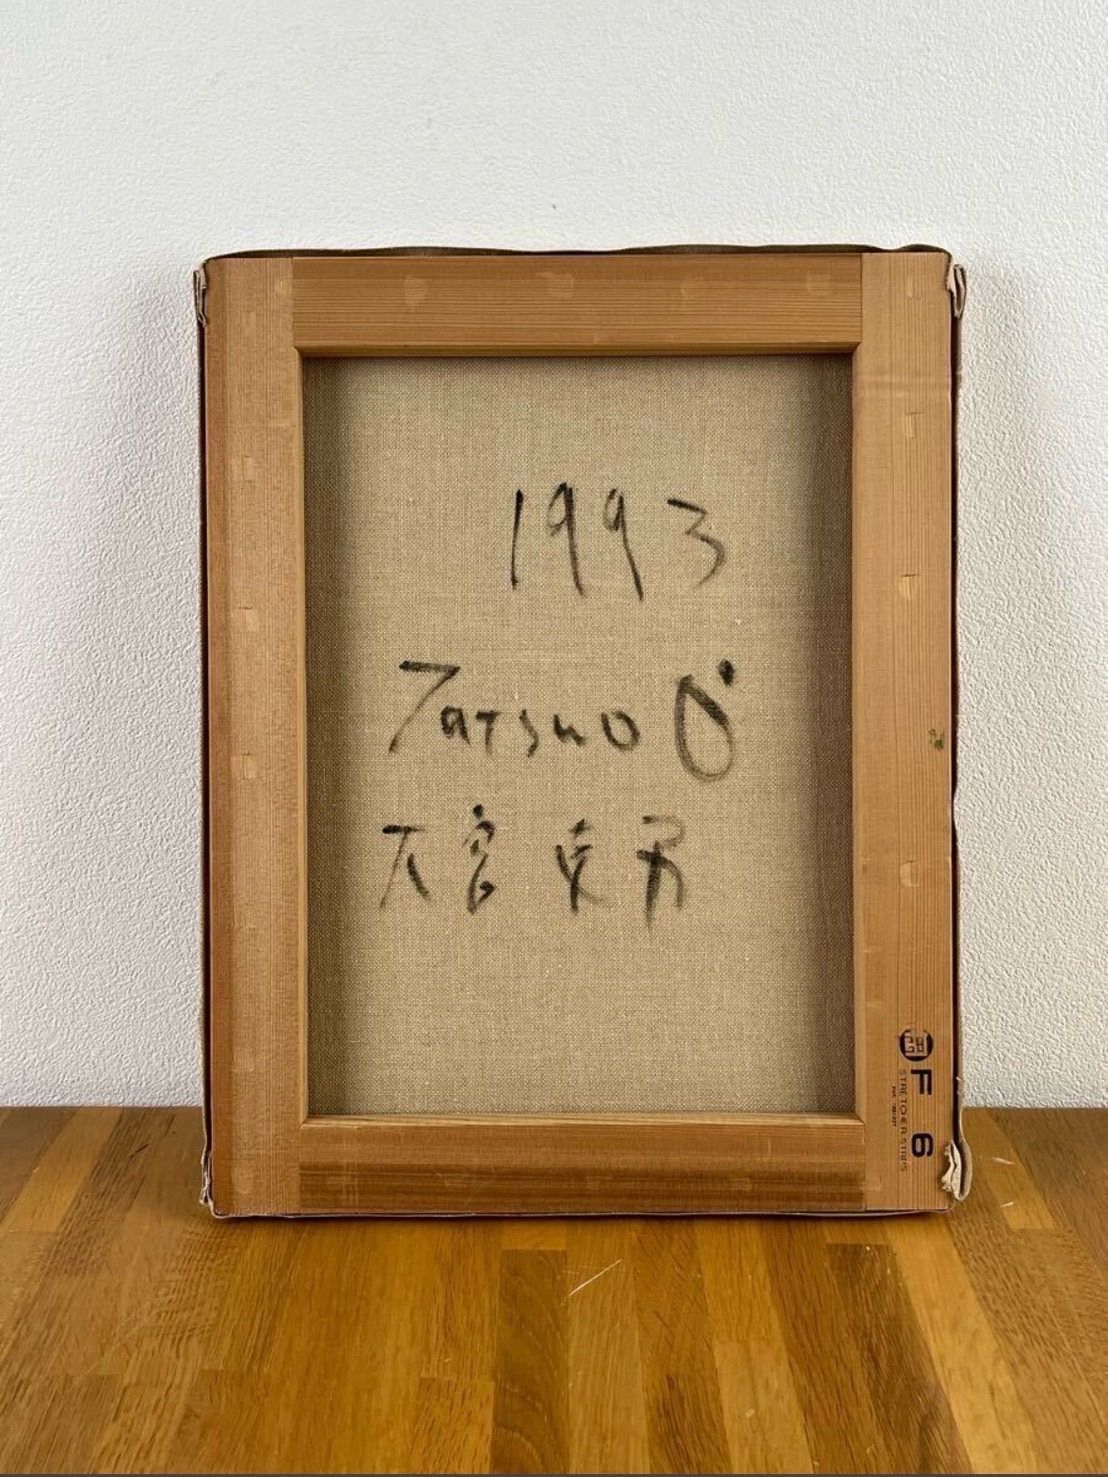 1993
Tatsuo O
大宮 男
F 6
STRETCHER STRIPS